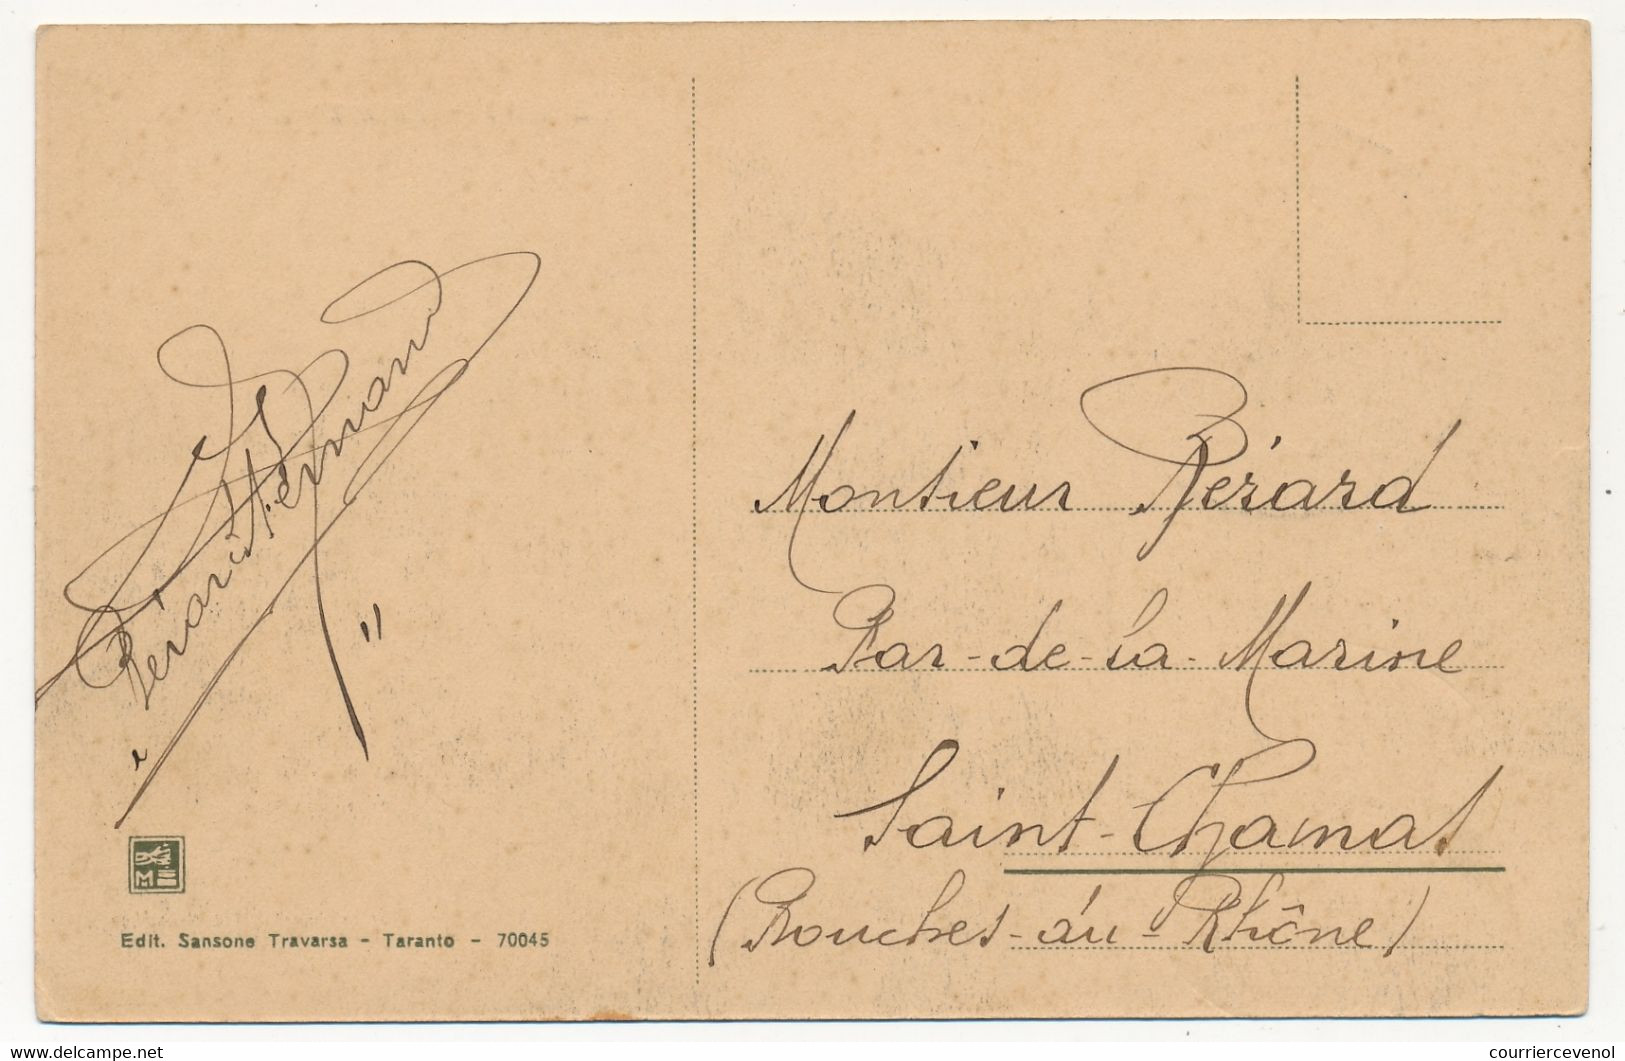 "Bérard Fernand"
M
Edit. Sansone Travarsa - Taranto - 70045
Monsieur Bérard
Par-de-la-Marine
Saint-Chamas
(Bouches-du-Rhône)
courriercevenol